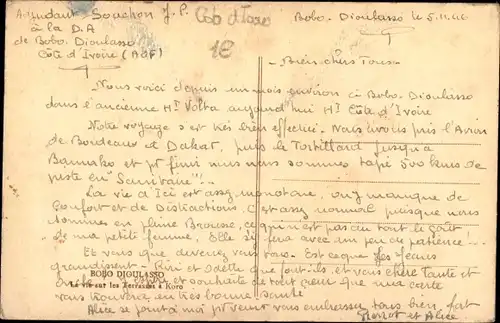 Adjudant Souchon J. P.
à la D A
de Bobo. Dioulasso
Côte d'Ivoire (AOF)
1€
Bobo. Dioulasso le 5.11.46
Biens chers Tous
Nous voici depuis un mois environ à Bobo. Dioulasso
dans l'ancienne Hte Volta aujourd'hui Hte Côte d'Ivoire
Notre voyage s'est très bien effectué. Nous avons pris l'Avion
de Bordeaux à Dakar, puis le Tortillard jusqu'à
Bamako et pr finir nous nous sommes tapé 500 kms de
piste en "Sanitaire"!..
La vie d'Ici est assez monotone, on y manque de
Confort et de Distractions. C'est assez normal puisque nous
sommes en pleine Brousse, ce qui n'est pas du tout le goût
de ma petite femme. Elle s'y fera avec un peu de patience!..
Et vous que devenez vous tous. Est-ce que les jeunes
grandissent - Riri et Odette que font-ils et vous chère tante et
BOBO DIOULASSO
La vie sur les Terrasses à Koro
oncle espère et souhaite de tout cœur que ma carte
vous trouvera en très bonne santé
Alice se joint à moi pr venir vous embrasser tous bien fort
Pierrot et Alice